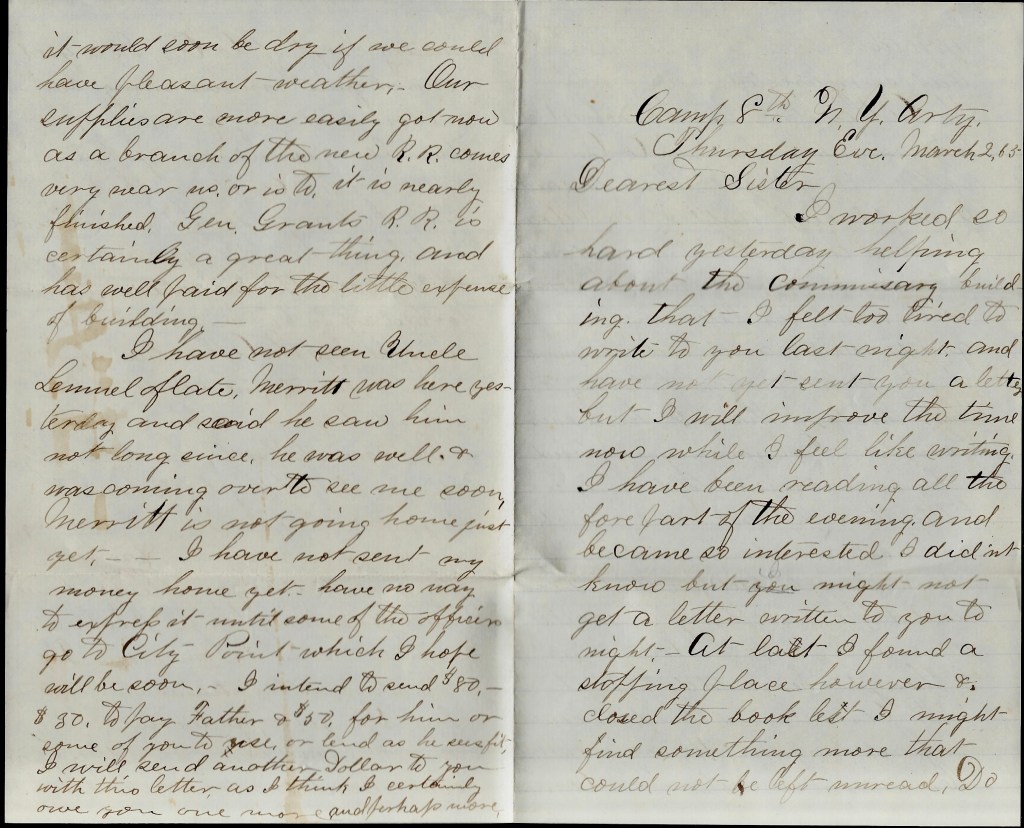 it would soon be dry if we could
have pleasant weather,- Our
supplies are more easily got now
as a branch of the new R.R. comes
very near us, or is to, it is nearly
finished. Gen. Grants R.R. is
certainly a great thing, and
has well paid for the little expense
of building.—
I have not seen Uncle
Lemuel of late, Merritt was here yes-
terday and said he saw him
not long since, he was well &
was coming over to see me soon,
Merritt is not going home just
yet,- – I have not sent my
money home yet- have no way
to express it until some of the officers
go to City Point which I hope
will be soon,- I intend to send $80,-
$30, to pay Father & $50, for him or
some of you to use, or lend as he sees fit,
I will send another Dollar to you
with this letter as I think I certainly
owe you one more and perhaps more,
Camp 8th N. Y. Arty.
Thursday Eve. March 2, 65
Dearest Sister
I worked so
hard yesterday helping
about the commissary build-
ing. that I felt too tired to
write to you last night. and
have not yet sent you a letter
but I will improve the time
now while I feel like writing.
I have been reading all the
fore part of the evening. and
became so interested I didn't
know but you might not
get a letter written to you to
night,- At last I found a
stopping place however &.
closed the book lest I might
find something more that
could not be left unread, Do